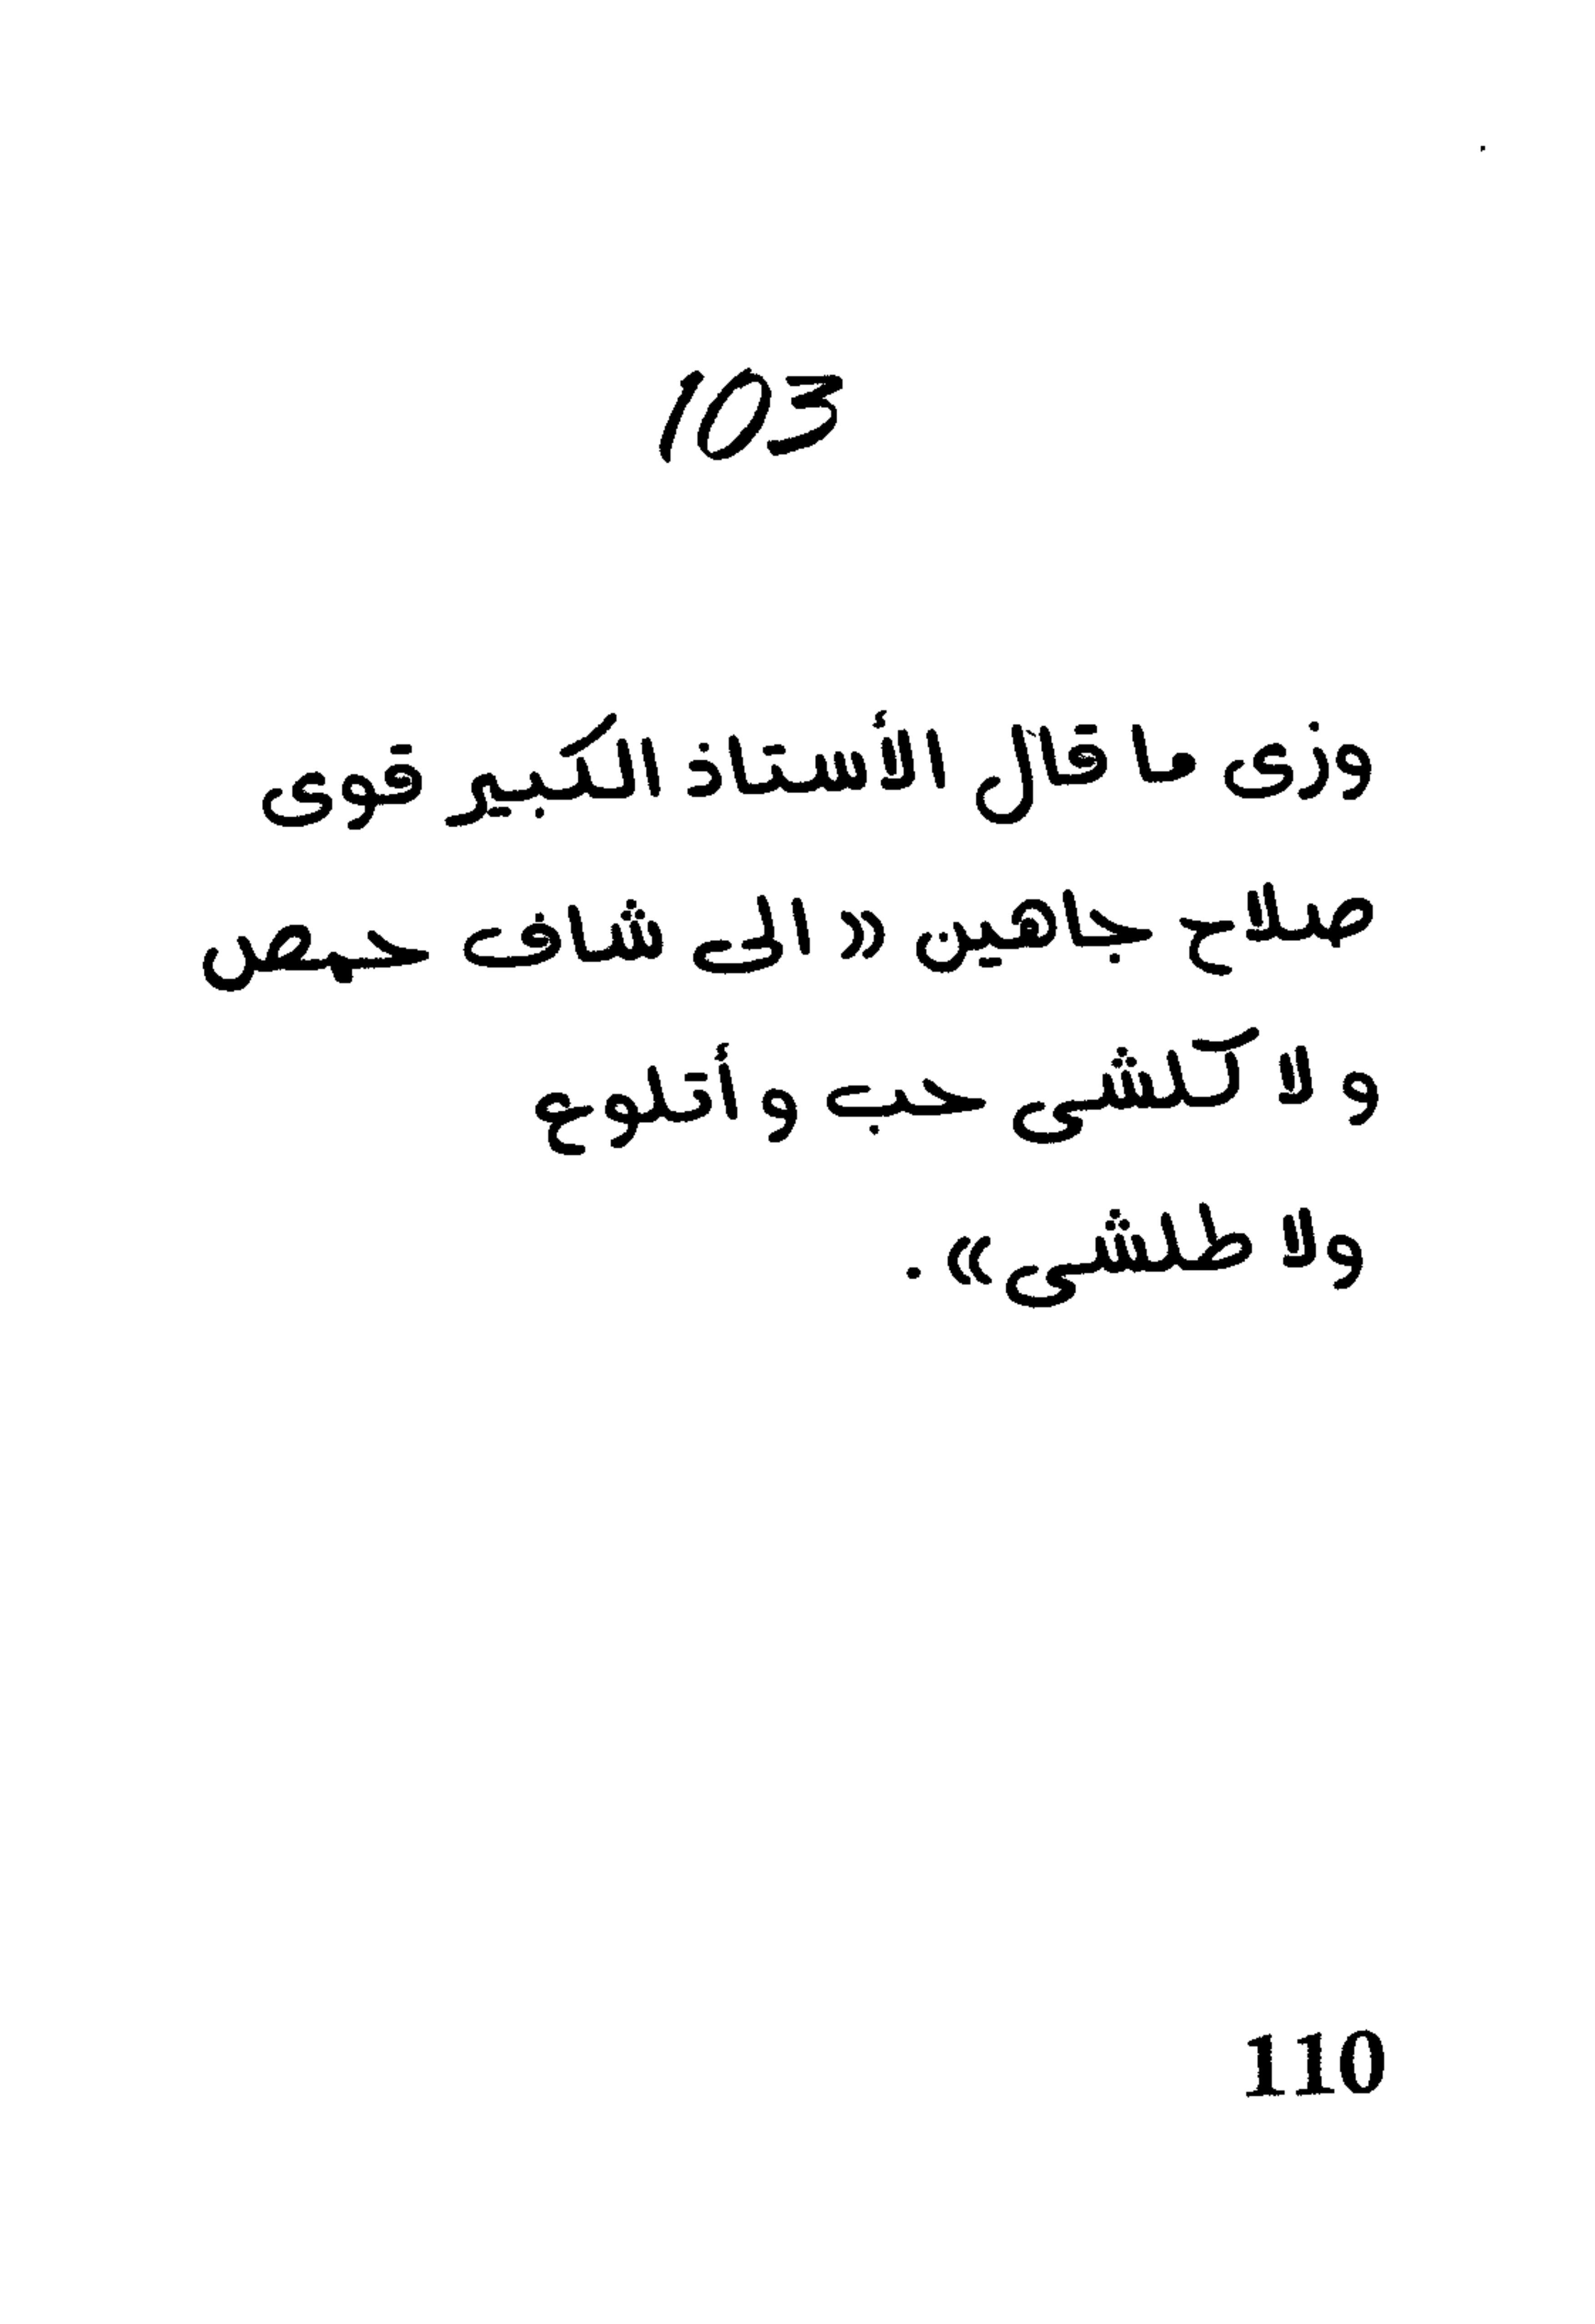 103
وزى ما قال الأستاذ الكبير قوى
صلاح جاهين « الى شاف حمص
و لا كلشى حب و أتلوع
ولا طلشى» .
110